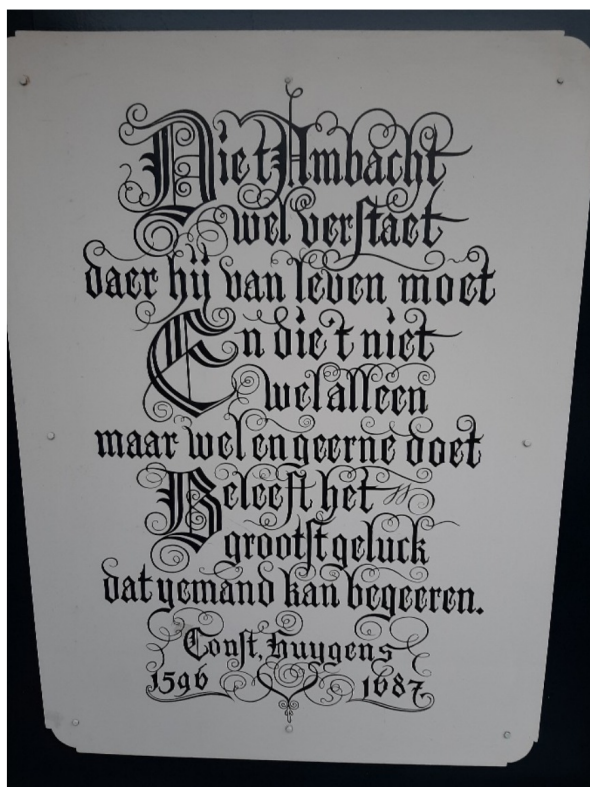 Die t Ambacht
wel verstaet
daer hij van leven moet
En die 't niet
wel alleen
maar wel en geerne doet
Beleeft het
grootst geluck
dat yemand kan begeeren.
Const. Huygens
1596 1687.